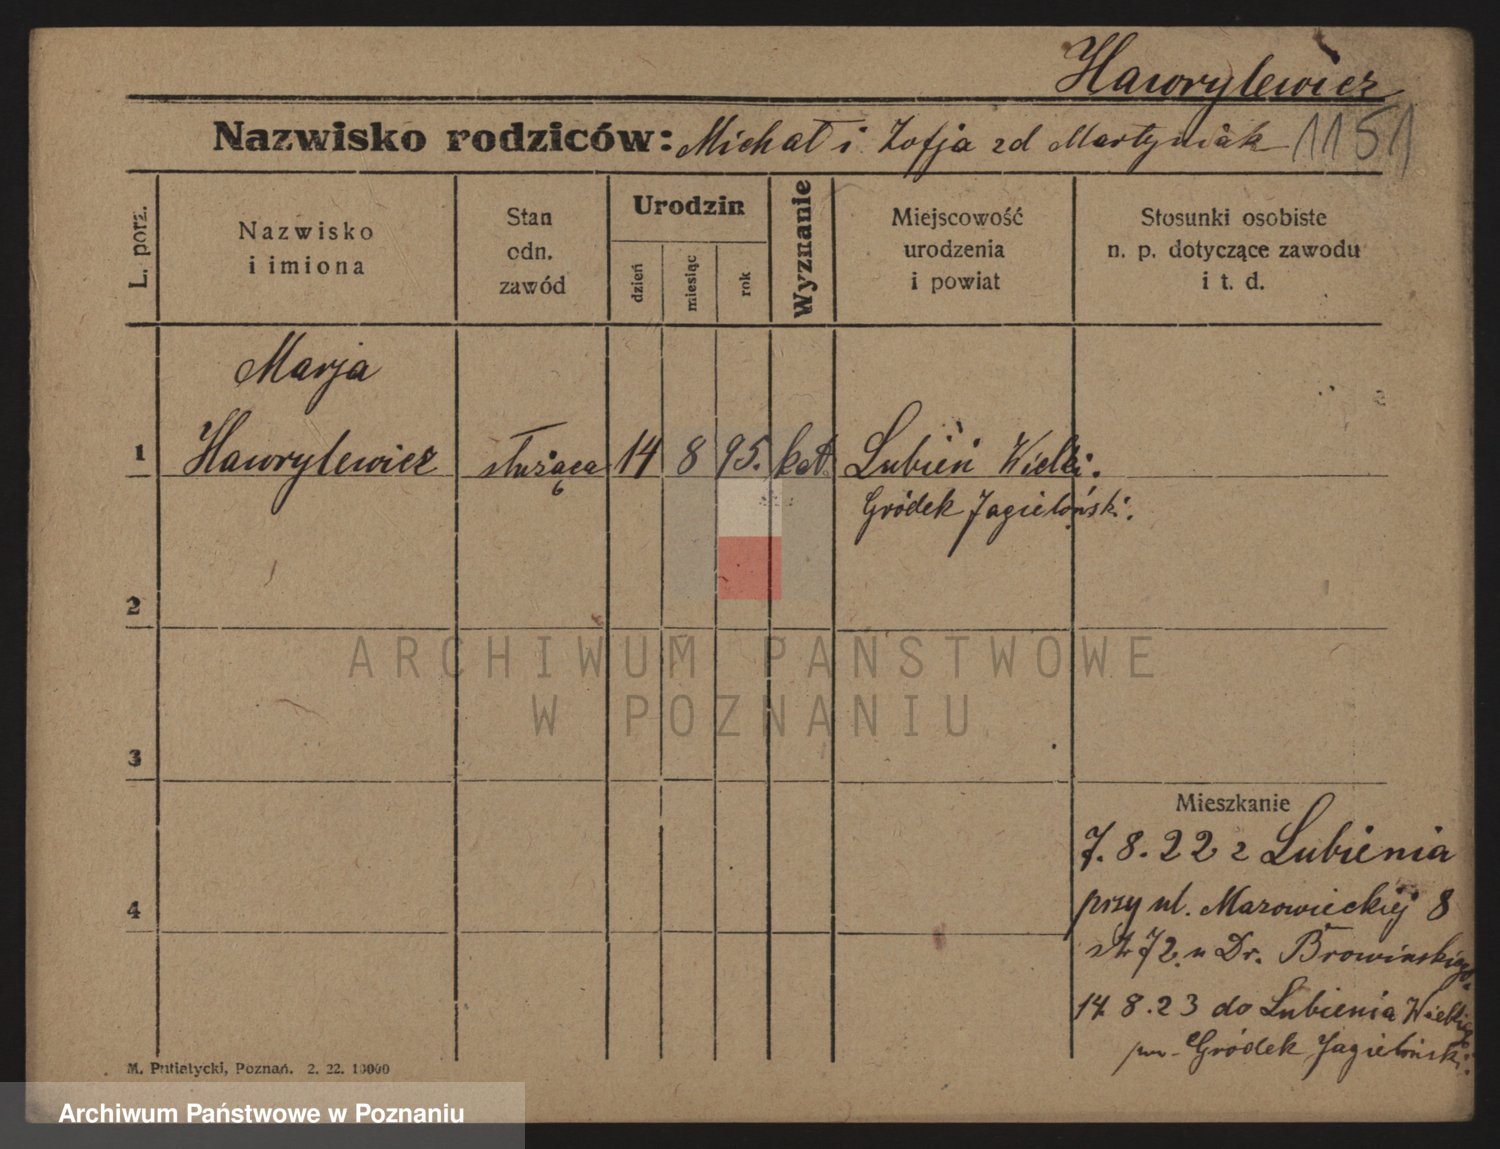 Hawrylewicz
Nazwisko rodziców: Michał i Zofja zd Martyniak 1151
L. porz.
Nazwisko
i imiona
Stan
odn.
zawód
Urodzin
dzień
miesiąc
rok
Wyznanie
Miejscowość
urodzenia
i powiat
Stosunki osobiste
n. p. dotyczące zawodu
i t. d.
Marja
1 Hawrylewicz służąca 14 8 95. kat. Lubień Wielki.
Gródek Jagieloński.
2
ARCHIWUM PAŃSTWOWE
W POZNANIU
3
Mieszkanie
7.8.22 z Lubienia
4 przy ul. Mazowieckiej 8
u Dr. Browińskiego.
14 8.23 do Lubienia
Gródek Jagieloński.
M. Putiatycki, Poznań. 2. 22. 10000
Archiwum Państwowe w Poznaniu